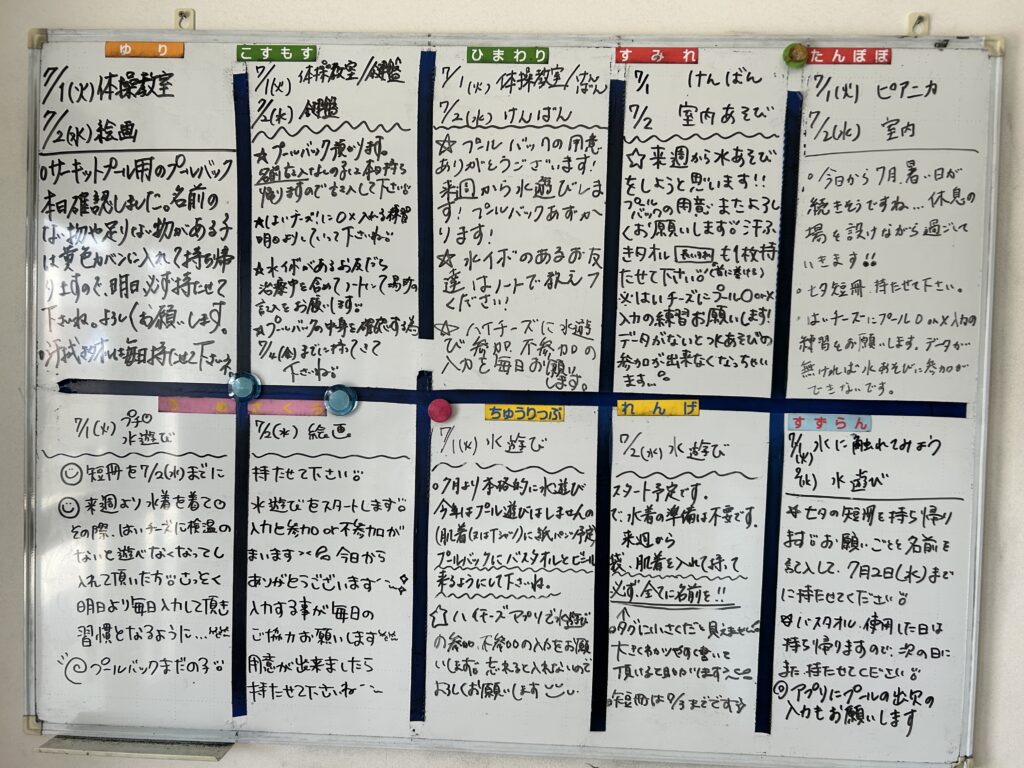 ゆり
7/1(火)体操教室
7/2(水)絵画
○サーキットプール用のプールバック
本日確認しました。名前の
ない物や足りない物がある子
は黄色カバンに入れて持ち帰
りますので、明日、必ず持たせて
下さいね。よろしくお願いします。
○汗拭きタオルは毎日持たせて下さいネ。
こすもす
7/1(火)体操教室/鍵盤
7/2(水)鍵盤
☆プールバック預かります。
名前を入なの子は本日持ち
帰りますので記入して下さい
★はいチーズ!に○×入れる練習
明日よりしていって下さいね
★水イボがあるお友だち
治療中を含めてノートにて
言えとお願いします
★プールバックの中身を確認する為
7/4(金)までに持ってきて
下さいね
ひまわり
7/1(火)体操教室/けんばん
7/2(水)けんばん
☆プールバックの用意
ありがとうございます!
来週から水遊びしま
す!プールバックあずか
ります!
☆水イボのあるお友
達はノートで教えて
ください!
☆ハイチーズに水遊
び参加、不参加の
入力を毎日お願い
します。
すみれ
7/1 けんばん
7/2 室内あそび
☆来週から水あそび
をしようと思います!!
プールバックの用意またよろし
くお願いします 汗ふ
きタオル 長い方が も1枚持
たせて下さい(首に巻ける)
※はいチーズにプール○or×
入力の練習お願いします!
データがないと水あそびの
参加が出来なくなっちゃい
ます...
たんぽぽ
7/1(火) ピアニカ
7/2(水) 室内
○今日から7月、暑い日が
続きそうですね...休息の
場を設けながら過ごして
いきます!!
○七夕短冊、持たせて下さい。
○はいチーズにプール○or×入力の
練習をお願いします。データが
無ければ水あそびに参加が
できないです。
うめ さくら
7/1(火) プチ
水遊び
7/2(水) 絵画
短冊を7/2(水)までに
持たせて下さい
来週より水着を着て
水遊びをスタートします
その際、はいチーズに検温の
入力と参加or不参加が
ないと遊べなくなってし
まいます 今日から
入れて頂いた方 さっそく
ありがとうございます
明日より毎日入力して頂き
入力する事が毎日の
習慣となるように...
ご協力お願いします
プールバックまだの子
用意が出来ましたら
持たせて下さいね~
ちゅうりっぷ
7/1(火) 水遊び
○7月より本格的に水遊び
今年はプール遊びはしませんの
(肌着(又はTシャツ)に紙パンツ予定)
プールバックにバスタオルとビニール
来るようにして下さいね。
☆ハイチーズアプリで水遊び
の参加、不参加の入力をお願
いします。忘れると入れないので
よろしくお願いします
れんげ
7/2(水)水遊び
スタート予定です。
で、水着の準備は不要です。
来週から
袋、肌着を入れて持って
必ず、全てに名前を!!
↑
○タグに小さくだと見えません
大きくわかりやすく書いて
頂けると助かります
短冊は7/3までです
すずらん
7/1(火)水に触れてみよう
7/2(水) 水遊び
☆七夕の短冊を持ち帰り
ます お願いごとと名前を
記入して、7月2日(水)まで
に持たせてください
☆バスタオル、使用した日は
持ち帰りますので、次の日に
また持たせてください
◎アプリにプールの出欠の
入力もお願いします